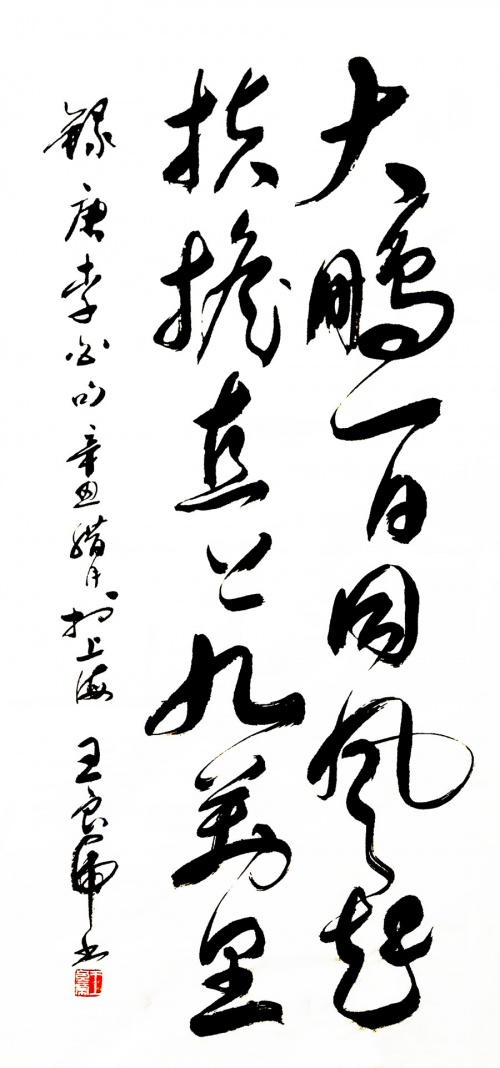 大鹏一日同风起
扶摇直上九万里
録唐李白句辛丑腊月於上海王良虎书